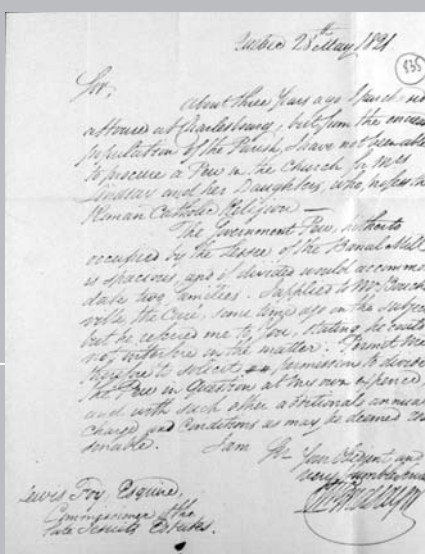 Quebec 28th May 1821.
835
Sir,
About three Years ago I purchased
a House at Charlesbourg, but from the encreased
population of the Parish, I have not been able
to procure a Pew in the Church for Mrs
Lindsay and her Daughters, who, profess the
Roman Catholic Religion —
The Government Pew, hitherto
occupied by the Lessee of the Banal Mill
is spacious, and if divided would accommo
date two families. I applied to Mr
ville the Curé, some time ago on the subject
but he referred me to You, stating he could
not interfere in the matter. Permit me
therefore to solicit permission to divide
the Pew in Question at my own expence,
and with such other additional annual
charge and Conditions as may be deemed rea
sonable. I am Sr— Your Obedient and
very humble
Lindsay
Lewis Foy, Esquire,
Commissioner of the
late Jesuits Estates.